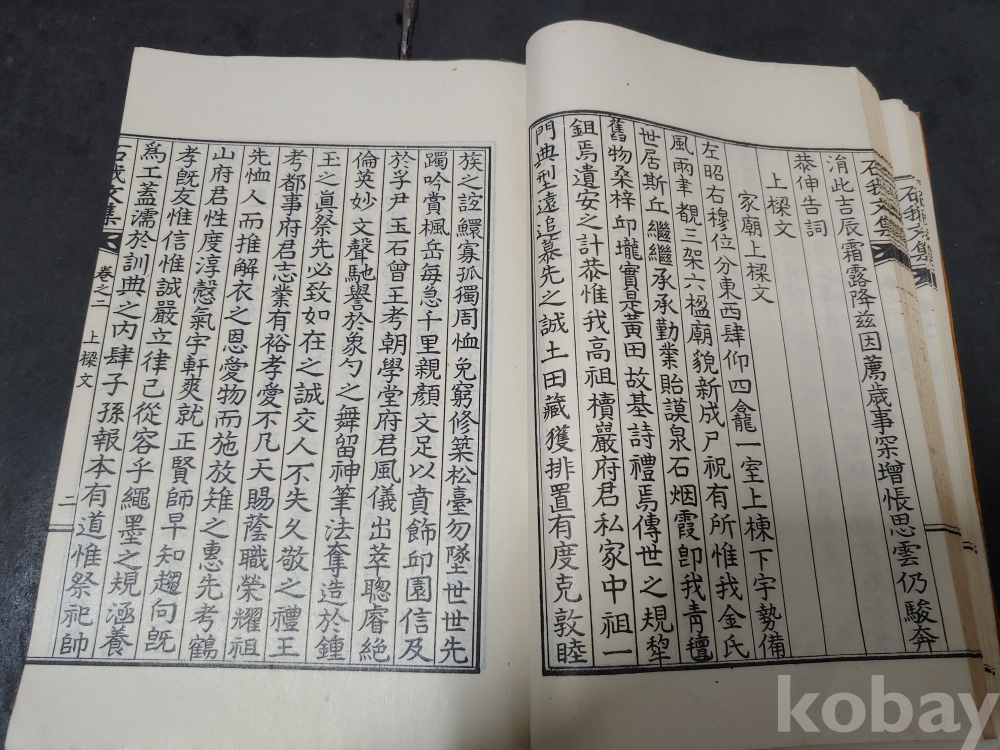 石我文集
涓此吉辰霜露降玆因薦歲事罙增悵思雲仍駿奔
恭伸告詞
上樑文
家廟上樑文
左昭右穆位分東西肆仰四龕一室上棟下宇勢備
風雨聿覩三架六楹廟貌新成尸祝有所惟我金氏
世居斯丘繼繼承承勤業貽謨泉石烟霞卽我靑氊
舊物桑梓邱壠實是黃田故基詩禮焉傳世之規犂
鉏焉遺安之計恭惟我高祖櫝巖府君私家中祖一
門典型遠追慕先之誠土田藏獲排置有度克敦睦
族之誼鰥寡孤獨周恤免窮修築松臺勿墜世世先
躅吟賞楓岳每急千里親顏文足以賁飾邱園信及
於孚尹玉石曾王考朝學堂府君風儀出萃聰睿絶
倫英妙文聲馳譽於象勺之舞留神筆法奪造於鍾
王之眞祭先必致如在之誠交人不失久敬之禮王
考都事府君志業有裕孝愛不凡天賜蔭職榮耀祖
先恤人而推解衣之恩愛物而施放雉之惠先考鶴
山府君性度淳慤氣宇軒爽就正賢師早知趨向旣
孝旣友惟信惟誠嚴立律己從容乎繩墨之規涵養
爲工蓋濡於訓典之內肆子孫報本有道惟祭祀帥
石我文集 卷之二 上樑文 二